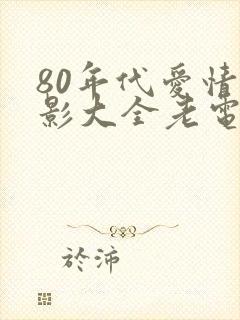 80年代愛情
影大全老電
於沛